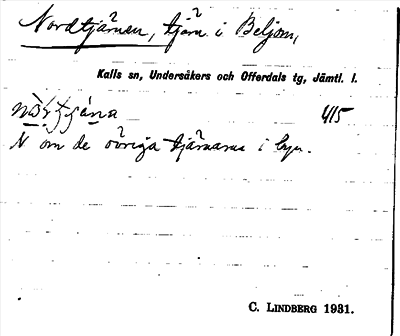 Nordtjärnen, tjärn i Beljom,
Kalls sn, Undersåkers och Offerdals tg, Jämtl. l.
415
N om de övriga tjärnarna i byn.
C. LINDBERG 1931.